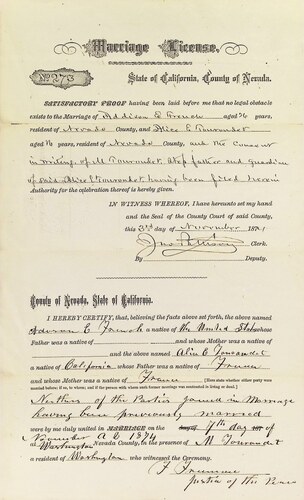 Marriage License.
No. 273
State of California, County of Nevada.
SATISFACTORY PROOF having been laid before me that no legal obstacle
exists to the Marriage of Addison E French aged 26 years,
resident of Nevada County, and Alice E Tourandet
aged 16 years, resident of Nevada County, and the consent
in writing of M Tourandet, Step father and guardian
of said Alice E Tourandet, having been filed herein
Authority for the celebration thereof is hereby given.
IN WITNESS WHEREOF, I have hereunto set my hand
and the Seal of the County Court of said County,
this 3rd day of November 1874
Jno Pattison Clerk.
By Deputy.
County of Nevada, State of California.
I HEREBY CERTIFY, that, believing the facts above set forth, the above named
E French a native of the United States whose
Father was a native of and whose Mother was a native of
and the above named Alice E Tourandet
a native of California whose Father was a native of France
and whose Mother was a Native of France
Neither of the Parties joined in Marriage
having been previously married
were by me duly united in MARRIAGE on the 7th day of
November A D 1874
at Washington Nevada County, in the presence of M Tourandet
a resident of Washington who witnessed the Ceremony.
Justice of the Peace